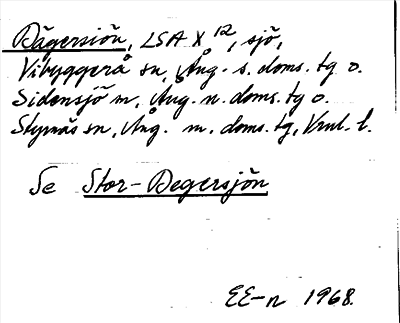 Dägersjön, LSA X 12, sjö,
Vibyggerå sn, Ång. s. doms. tg o.
Sidensjö sn, Ång. n. doms. tg o.
Styrnäs sn, Ång. m. doms. tg, Vnl. l.
Se Stor-Degersjön
EE-n 1968.